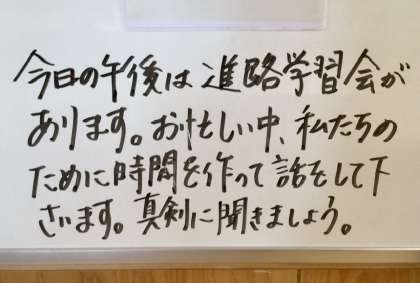 今日の午後は進路学習会が
あります。お忙しい中、私たちの
ために時間を作って話をして下
さいます。真剣に聞きましょう。